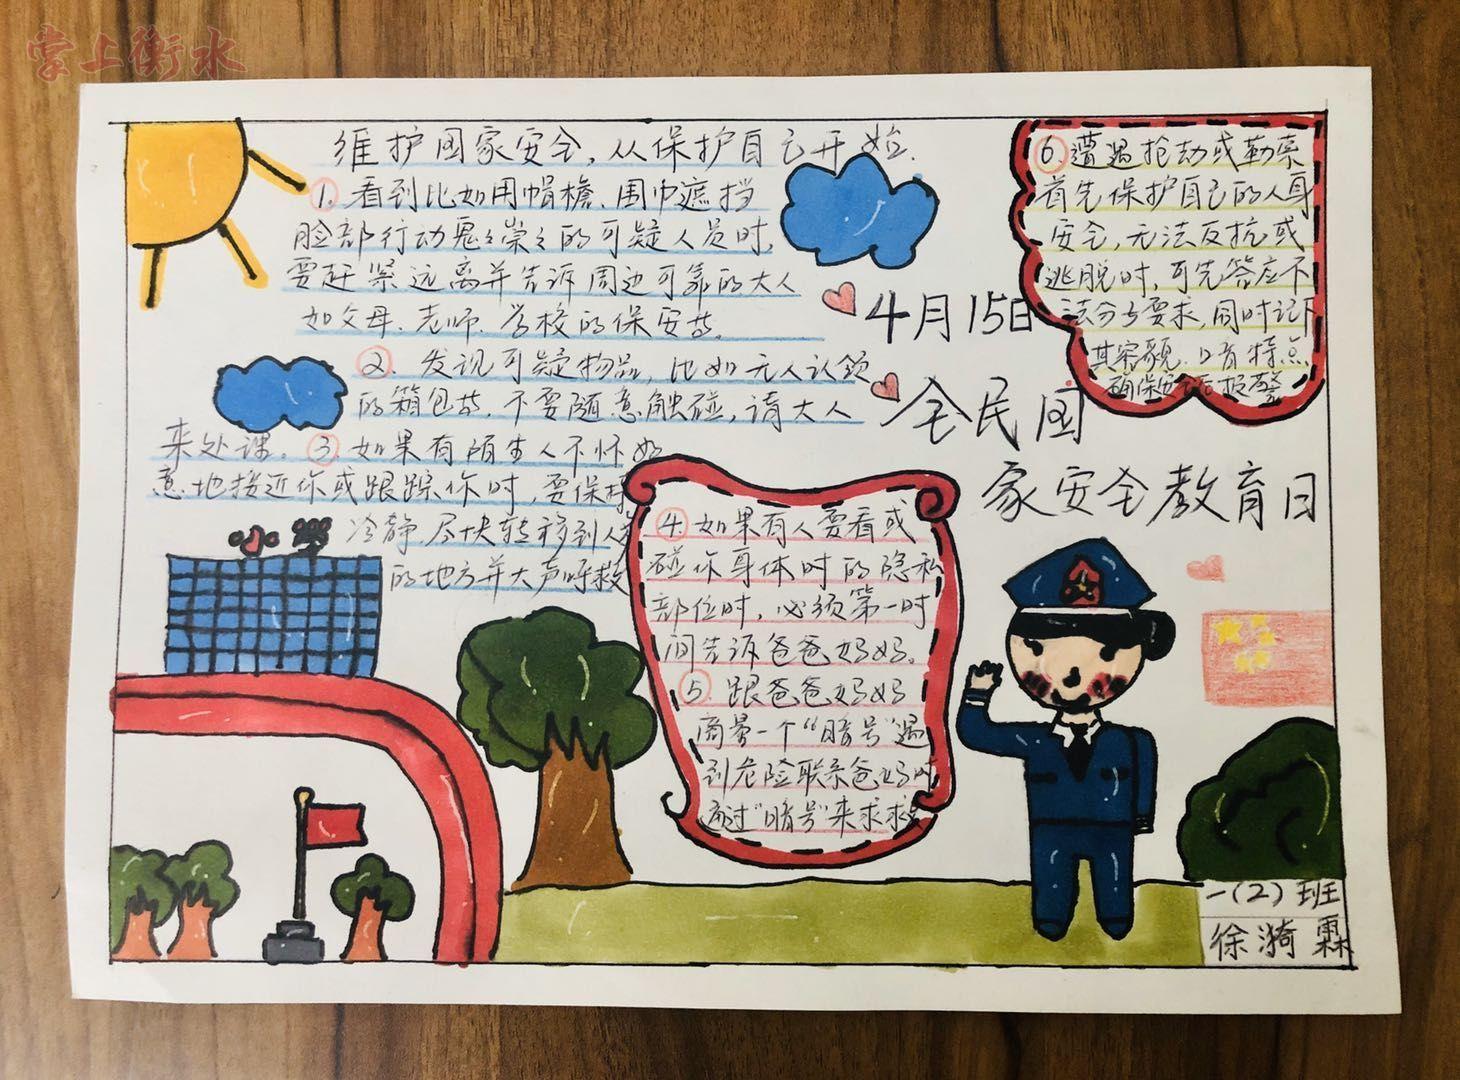 掌上衡水
维护国家安全,从保护自己开始.
1.看到比如用帽檐、围巾遮挡
脸部行动鬼鬼祟祟的可疑人员时,
要赶紧远离并告诉周边可靠的大人
如父母、老师、学校的保安等。
2.发现可疑物品,比如无人认领
的箱包等,不要随意触碰,请大人
来处理。3.如果有陌生人不怀好
意地接近你或跟踪你时,要保持
冷静,尽快转移到人
的地方并大声呼救
4月15日
全民国
家安全教育日
6.遭遇抢劫或勒索
首先保护自己的人身
安全,无法反抗或
逃脱时,可先答应不
法分子要求,同时记下
其容貌、口音特点
确保安全后报警
小学
4.如果有人要看或
碰你身体时的隐私
部位时,必须第一时
间告诉爸爸妈妈。
5.跟爸爸妈妈
商量一个“暗号”遇
到危险联系爸妈时
通过“暗号”来求救
一(2)班
徐漪霖